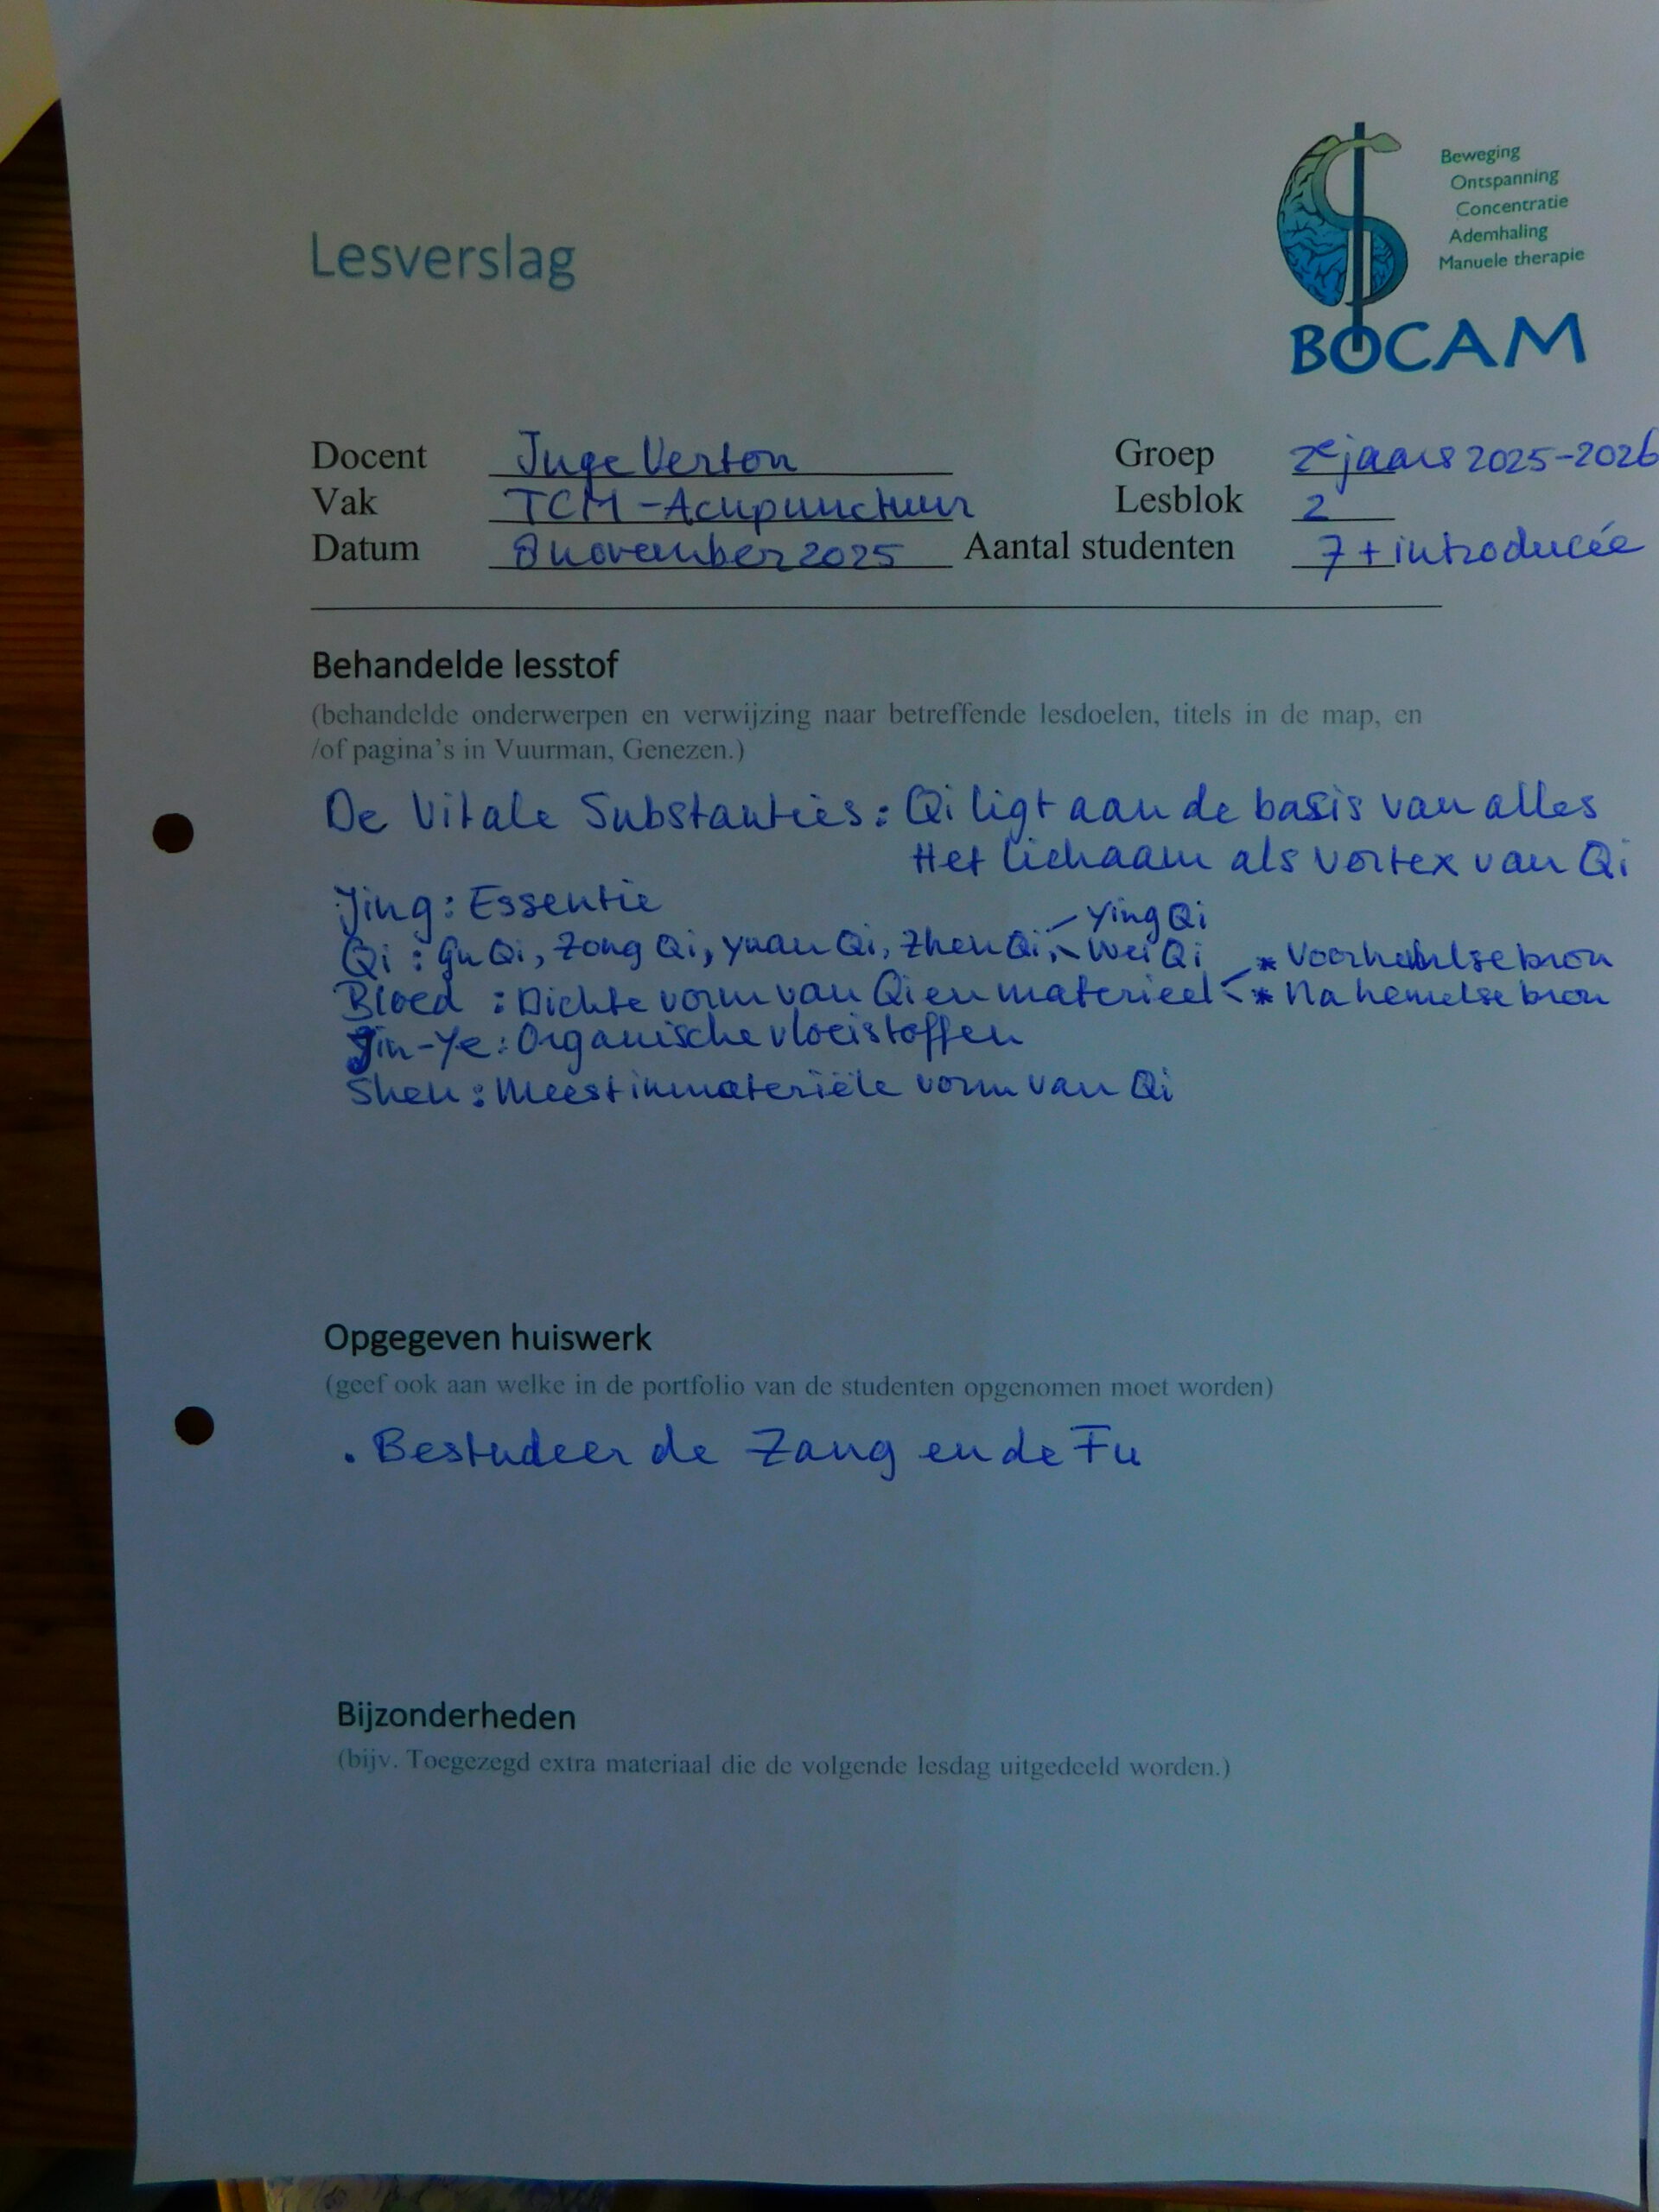 Beweging
Ontspanning
Concentratie
Ademhaling
Manuele therapie
BOCAM
Lesverslag
Docent Inge Verton Groep 2e jaars 2025-2026
Vak TCM-Acupunctuur Lesblok 2
Datum 8 november 2025 Aantal studenten 7 + introducée
Behandelde lesstof
(behandelde onderwerpen en verwijzing naar betreffende lesdoelen, titels in de map, en
/of pagina's in Vuurman, Genezen.)
De Vitale Substanties: Qi ligt aan de basis van alles
Het lichaam als vortex van Qi
Jing: Essentie
Ying Qi
Qi: Gu Qi, Zong Qi, Yuan Qi, Zhen Qi, Wei Qi * Voorhemelse bron
Bloed: Dichte vorm van Qi en materieel * Na hemelse bron
Jin-Ye: Organische vloeistoffen
Shen: Meest immateriële vorm van Qi
Opgegeven huiswerk
(geef ook aan welke in de portfolio van de studenten opgenomen moet worden)
. Bestudeer de Zang en de Fu
Bijzonderheden
(bijv. Toegezegd extra materiaal die de volgende lesdag uitgedeeld worden.)